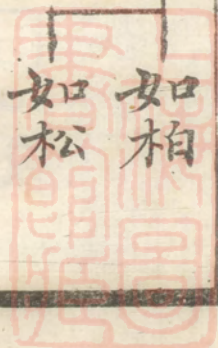 如柏
如松